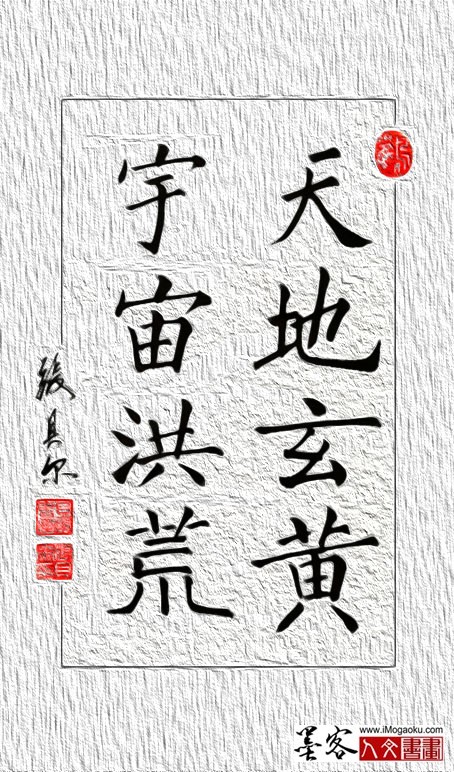 天地玄黄
宇宙洪荒
墨客
www.iMogaoku.com
人文書畫